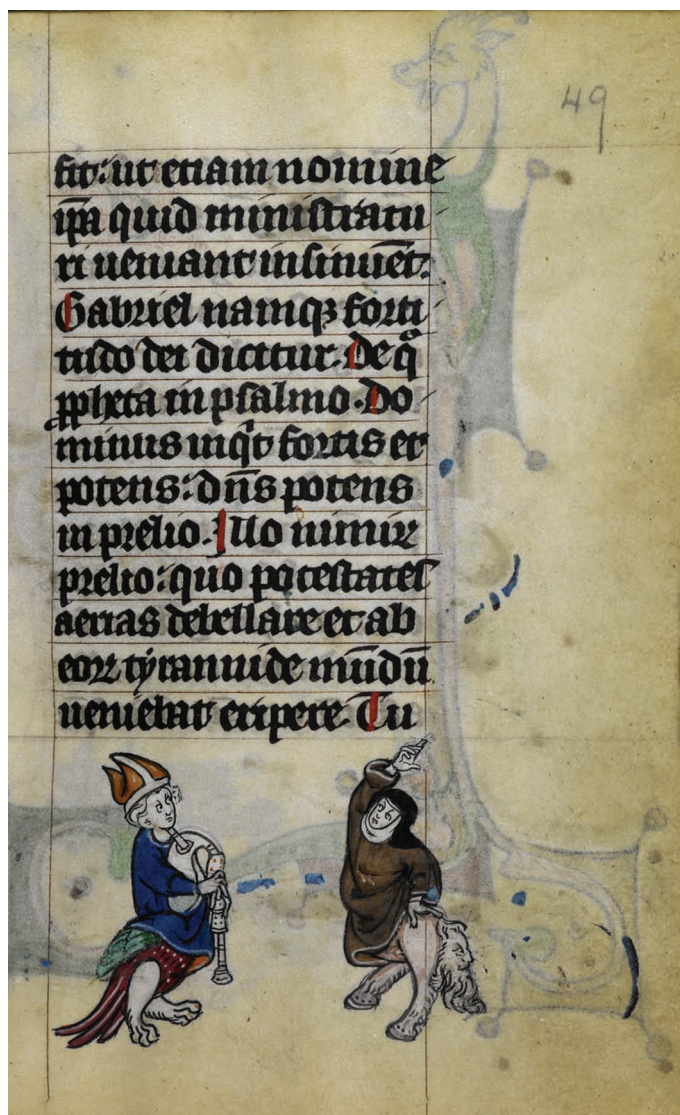 49
fit: ut etiam nomine
ip̄a quid ministratu
ri ueniant insinuēt.
Gabriel namqꝫ forti
tudo dei dicitur. De q̊
ꝓpheta in psalmo. Do
minus inqͥt fortis et
potens: dn̄s potens
in prelio. Illo nimiꝝ
prelio: quo potestates
aerias debellare et ab
eoꝝ tyrannide mūdū
ueniebat eripere. Tu